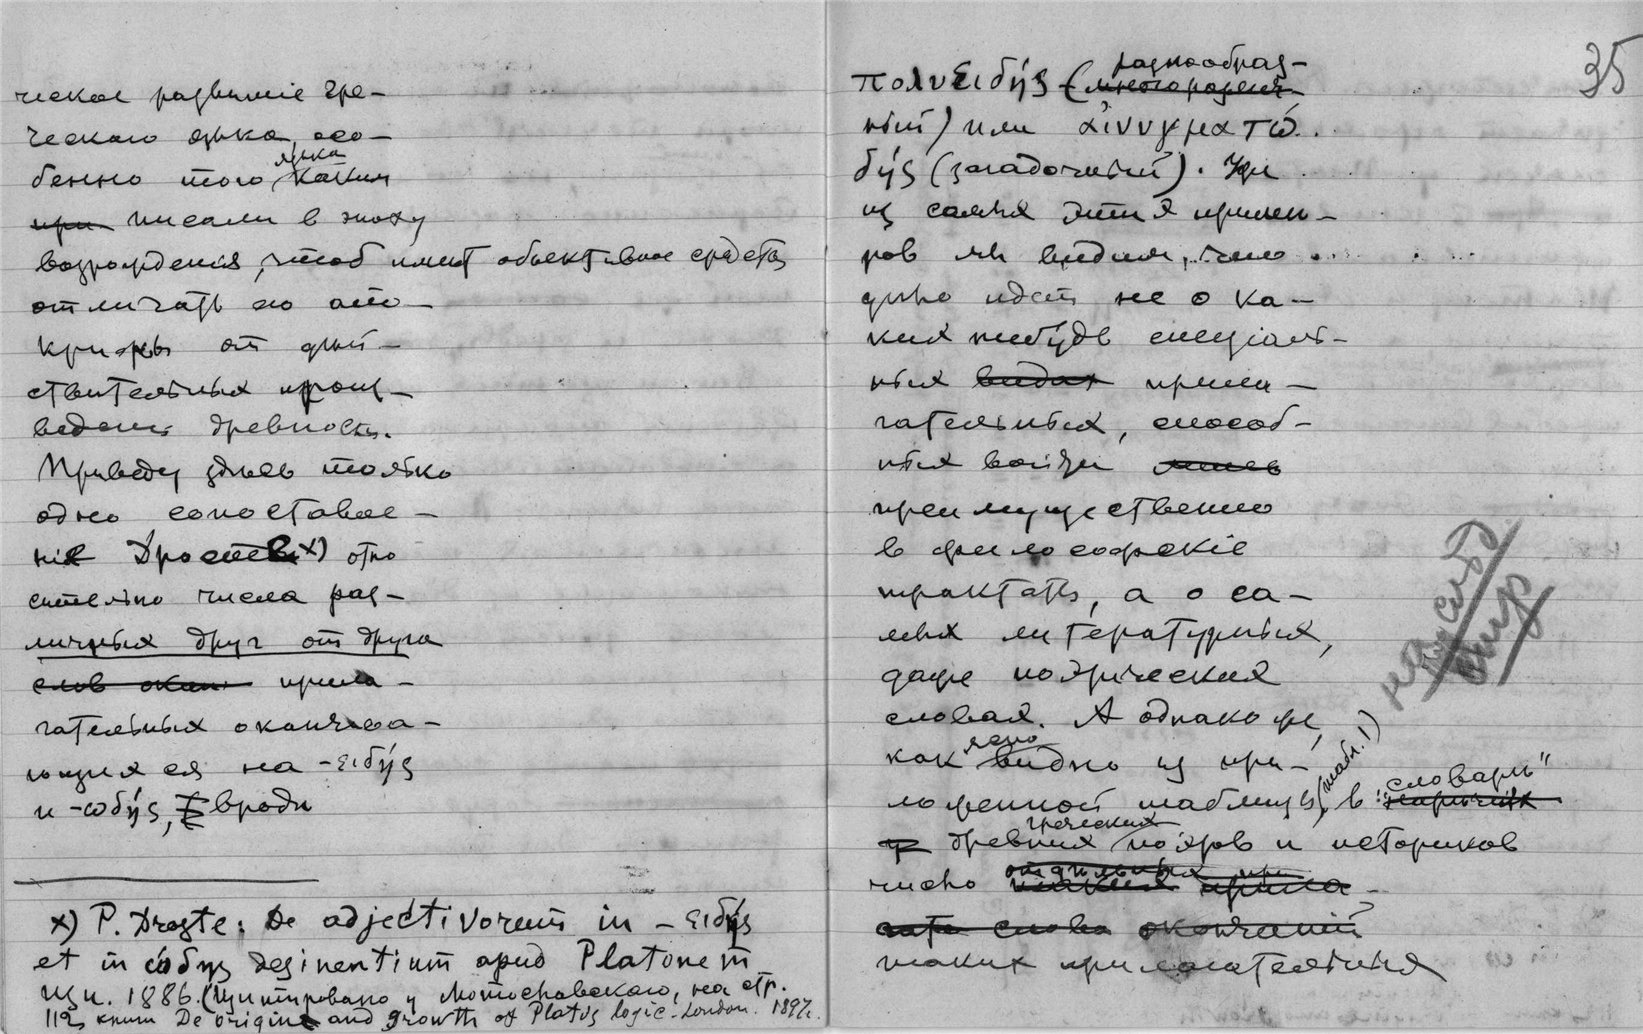 ческое развитіе гре-
ческаго языка, осо-
бенно того языка каким
при писали в эпоху
возрожденія, чтоб имет объективное средство
отличать его апо-
крифы от дѣй-
ствительных произ-
ведений древности.
Приведу здѣсь только
одно сопоставле-
ніе Дросте x) отно
сительно числа раз-
личных друг от друга
слов окан прила-
гательных оканчива-
ющихся на -ειδής
и -ωδής, вроде
x) P. Droste: De adjectivorum in -ειδής
et in ώδης desinentium apud Platonem
1886. (Цитировано у Лютославскаго, на стр.
112 книги De origin and growth of Platos logic. London. 1897г.
35
πολυειδής (многоразлич- разнообраз-
ный) или αἰνυγματώ-
δής (загадочный). Уже
из самых этих приме-
ров мы видим, что
дѣло идет не о ка-
ких нибудь спеціаль-
ных видах прила-
гательных, способ-
ных войти лишь
преимущественно
в философскіе
трактаты, а о са-
мых литературных,
даже поэтических
словах. А однако же,
как ясно видно из при-
ложенной таблицы (табл. 1) в "словарь"
древних греческих поэтов и историков
число отдѣльных при таких прила-
гате слова окончаний
таких прилагательных